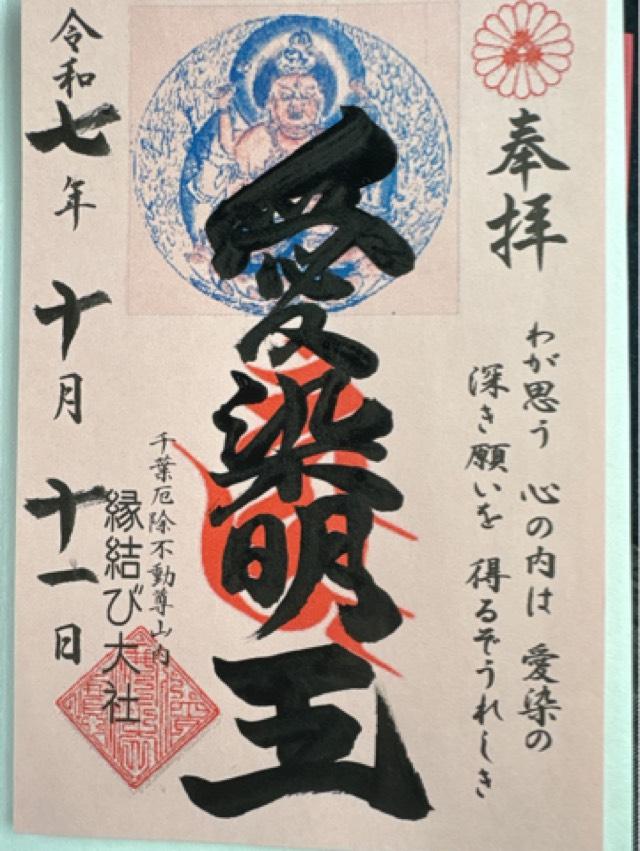 奉拝
わが思う 心の内は 愛染の
深き願いを 得るぞうれしき
愛染明王
千葉厄除不動尊山内
縁結び大社
令和七年十月十一日